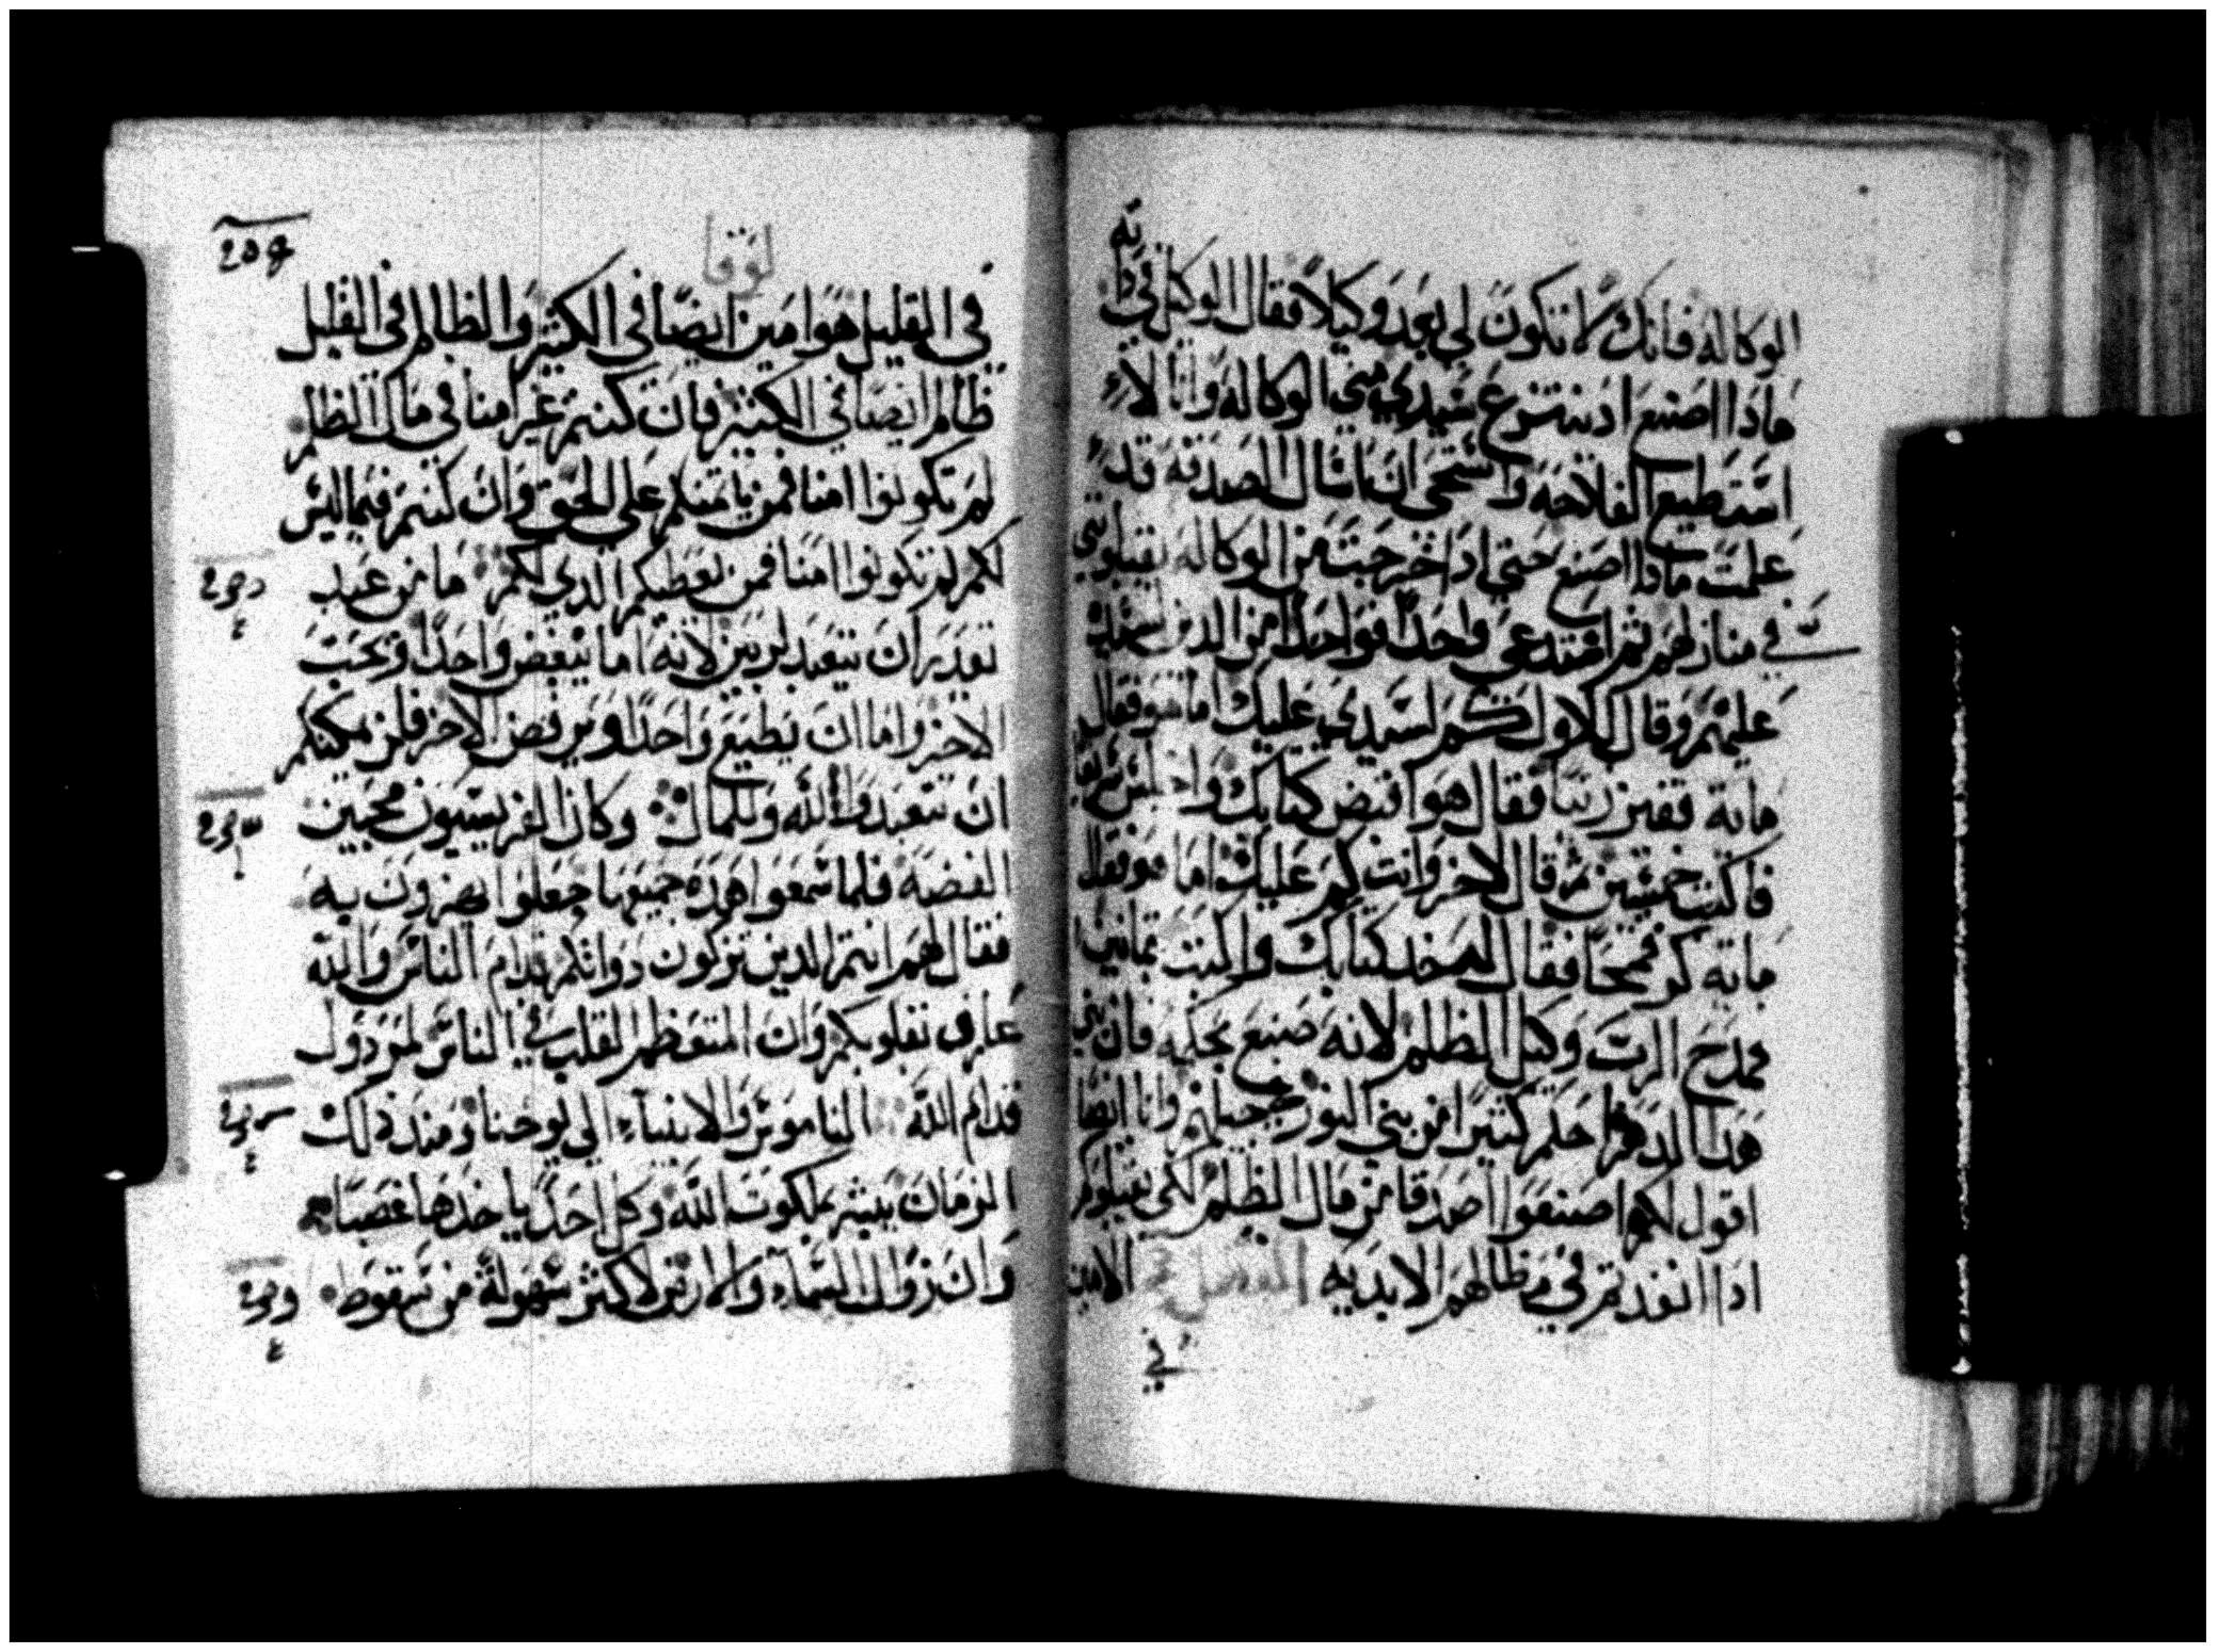 الوكاله فانك لا تكون لي بعد وكيلاً فقال الوكيل في ذاته
ماذا اصنع اذ ينتزع سيدي مني الوكاله وانا لا
استطيع الفلاحه واستحى ان اسال الصدقه قد
علمت ماذا اصنع حتى اذا خرجت من الوكاله يقبلوني
في منازلهم ثم استدعى واحداً فواحداً من الذين
عليهم وقال للاول كم لسيدي عليك اما هو فقال
ماية قفيز زيتاً فقال هو اقبض كتابك واجلس
فاكتب خمسين ثم قال للاخر وانت كم عليك اما هو فقال
ماية كر قمحاً فقال له خد كتابك واكتب ثمانين
فمدح الرب وكيل الظلم لانه صنع بحكمه فان بني
هدا الدهر احكم كثيراً من بني النور في جيلهم وانا ايضا
اقول لكم اصنعوا اصدقا من مال الظلم لكي يقبلوكم
ادا انفدتم في مظالهم الابديه الفصل الامين
في
لوقا
في القليل هو امين ايضا في الكثير والظالم في القليل
ظالم ايضا في الكثير فان كنتم غير امنا في مال الظلم
لم تكونوا امنا فمن يامنكم على الحق وان كنتم فيما ليس
لكم لم تكونوا امنا فمن يعطيكم الدي لكم ما من عبد
يقدر ان يتعبد لربين لانه اما يبغض واحداً ويحب
الاخر واما ان يطيع واحداً ويرفض الاخر فلن يمكنكم
ان تتعبدوا لله وللمال وكان الفريسيون محبين
الفضه فلما سمعوا هده جميعها جعلوا يهزون به
فقال لهم انتم الدين تزكون دواتكم قدام الناس والله
عارف بقلوبكم وان المتعظم القلب في الناس لمردول
قدام الله الناموس والانبياء الى يوحنا ومند دلك
الزمان يبشر بملكوت الله وكل احد ياخدها غصبا
وان زوال السماء والارض لاكثر سهولة من سقوط